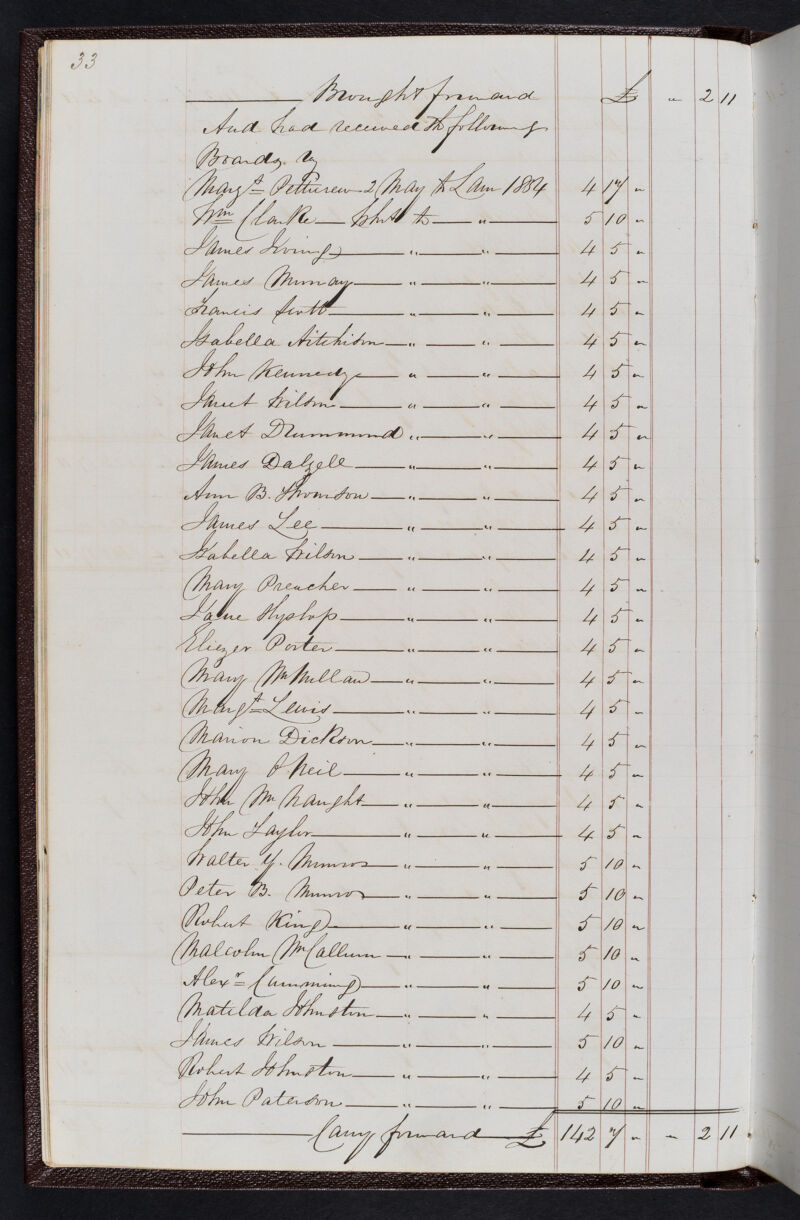 33
Brought forward £ " 2 11
And had received the following
Boards. by
Margt Pettucrew 2 May to Lam 1884 4 17 "
Wm Clarke — Whit to — " — 5 10 "
James Irving — " — " — 4 5 "
James Murray — " — " — 4 5 "
Francis Scott — " — " — 4 5 "
Isabella Aitchison — " — " — 4 5 "
John Kennedy — " — " — 4 5 "
Janet Wilson — " — " — 4 5 "
Janet Drummond " — " — 4 5 "
James Dalzell — " — " — 4 5 "
Ann B. Thomson — " — " — 4 5 "
James Lee — " — " — 4 5 "
Isabella Wilson — " — " — 4 5 "
Mary Preacher — " — " — 4 5 "
Jane Hyslop — " — " — 4 5 "
Eliezer Porter — " — " — 4 5 "
Mary McMillan — " — " — 4 5 "
Margt Lewis — " — " — 4 5 "
Marion Dickson — " — " — 4 5 "
Mary O'Neil — " — " — 4 5 "
John McNaught — " — " — 4 5 "
John Taylor — " — " — 4 5 "
Walter Y. Munro — " — " — 5 10 "
Peter B. Munro — " — " — 5 10 "
Robert King — " — " — 5 10 "
Malcolm McCallum — " — " — 5 10 "
Alexr Cumming — " — " — 5 10 "
Matilda Johnston — " — " — 4 5 "
James Wilson — " — " — 5 10 "
Robert Johnston — " — " — 4 5 "
John Paterson — " — " — 5 10 "
Carry forward £ 142 7 " " 2 11